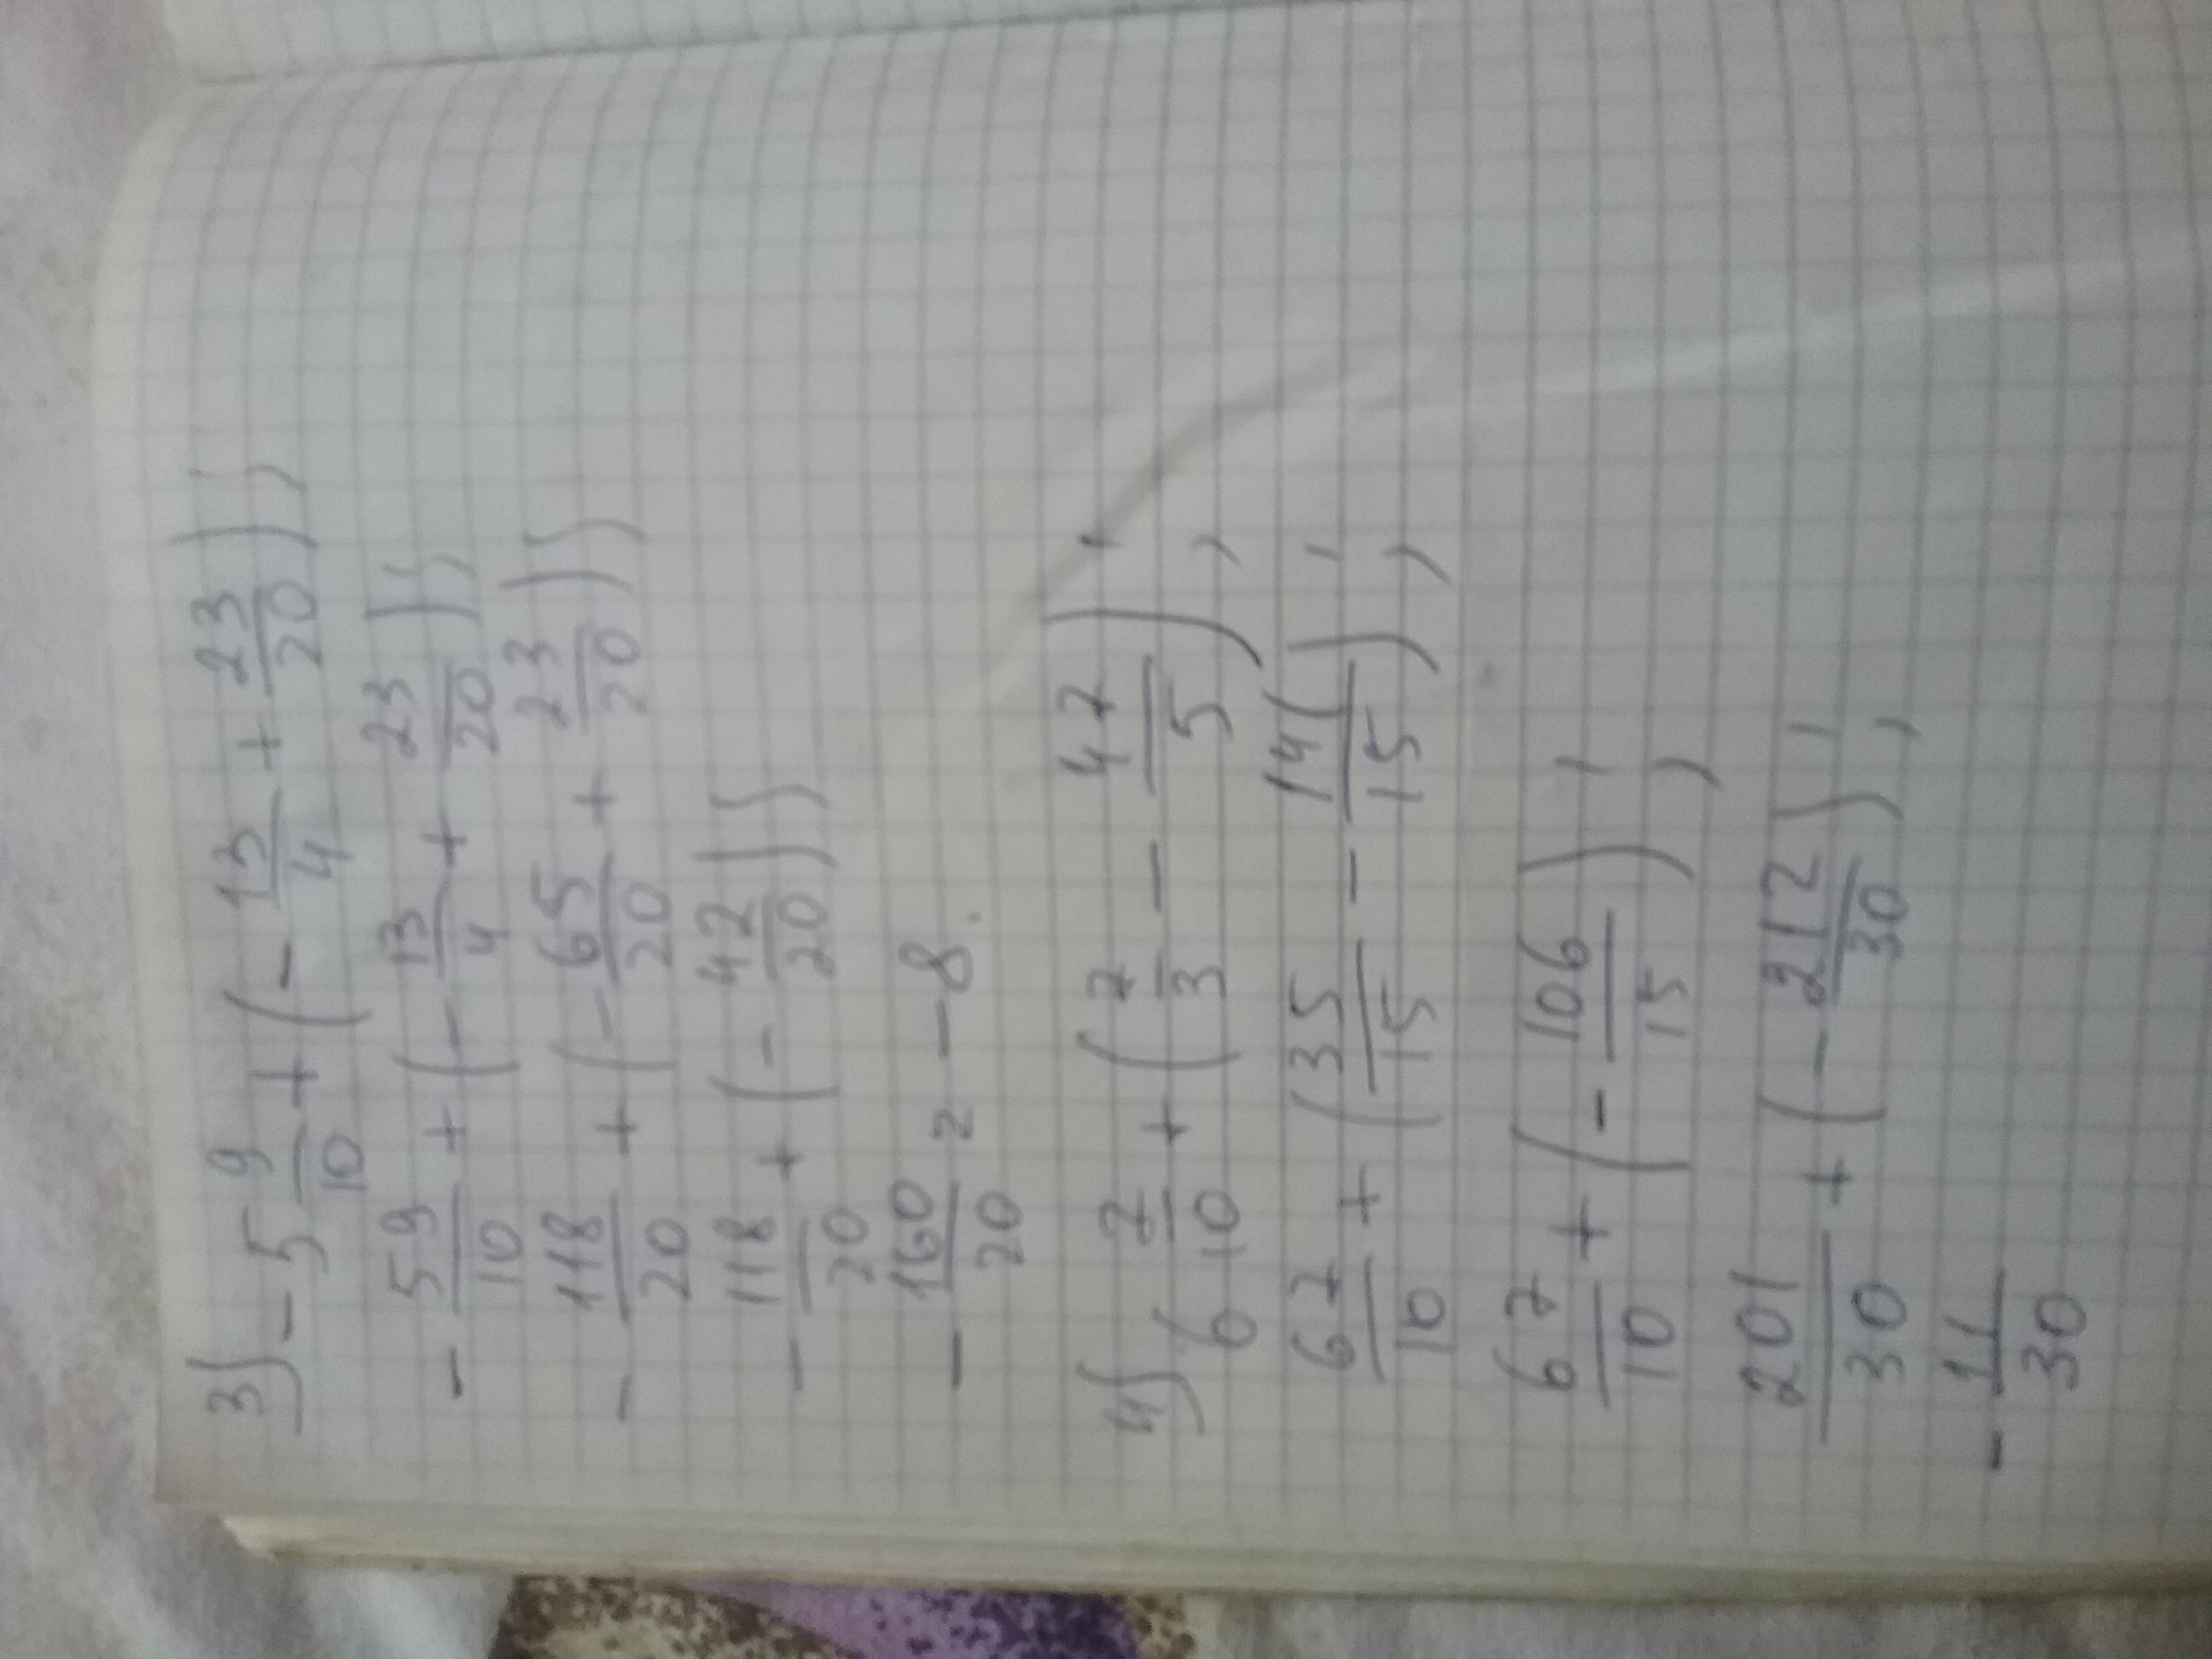 3) - 5 9/10 + (- 13/4 + 23/20);
- 59/10 + (- 13/4 + 23/20);
- 118/20 + (- 65/20 + 23/20);
- 118/20 + (- 42/20);
- 160/20 = - 8.
4) 6 7/10 + (7/3 - 47/5);
67/10 + (35/15 - 141/15);
67/10 + (- 106/15);
201/30 + (- 212/30);
- 11/30